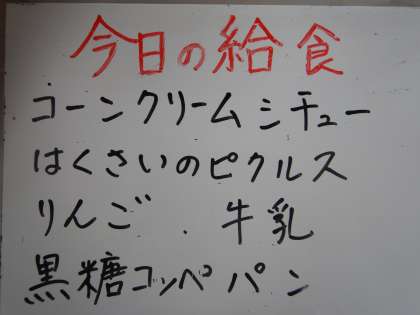 今日の給食
コーンクリームシチュー
はくさいのピクルス
りんご . 牛乳
黒糖コッペパン